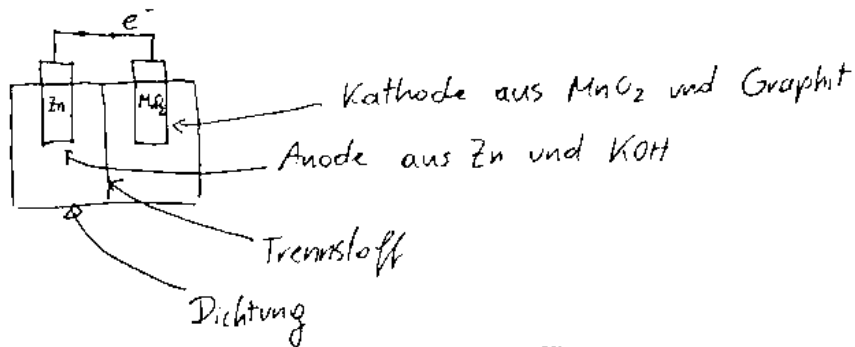 e⁻
Zn
MnO₂
Kathode aus MnO₂ und Graphit
Anode aus Zn und KOH
Trennstoff
Dichtung